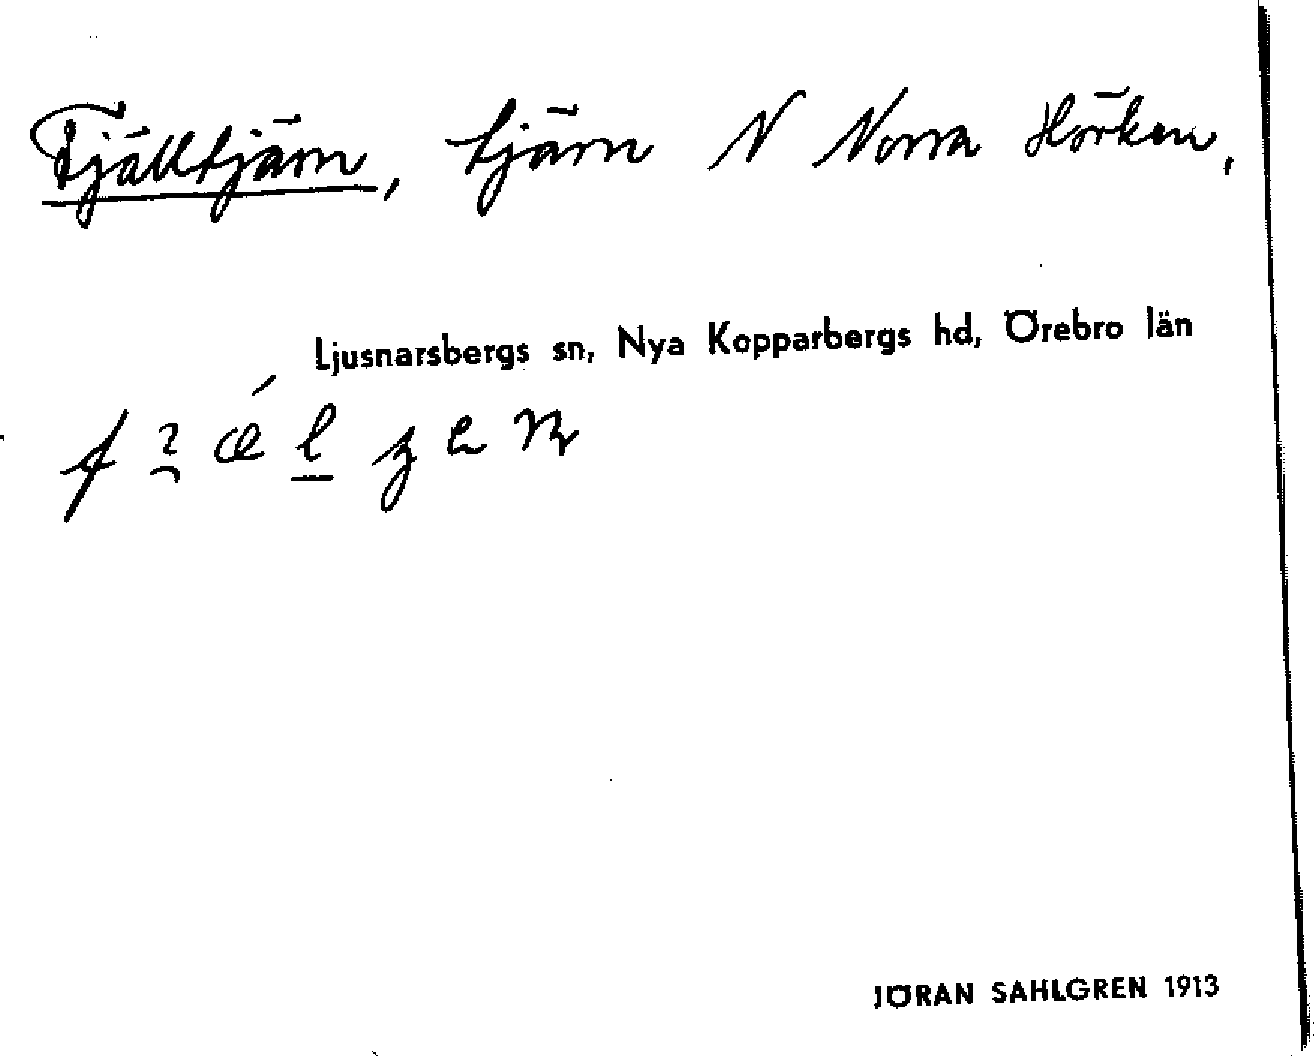 Fjälltjärn, tjärn N Norra Hörken,
Ljusnarsbergs sn, Nya Kopparbergs hd, Örebro län
JÖRAN SAHLGREN 1913